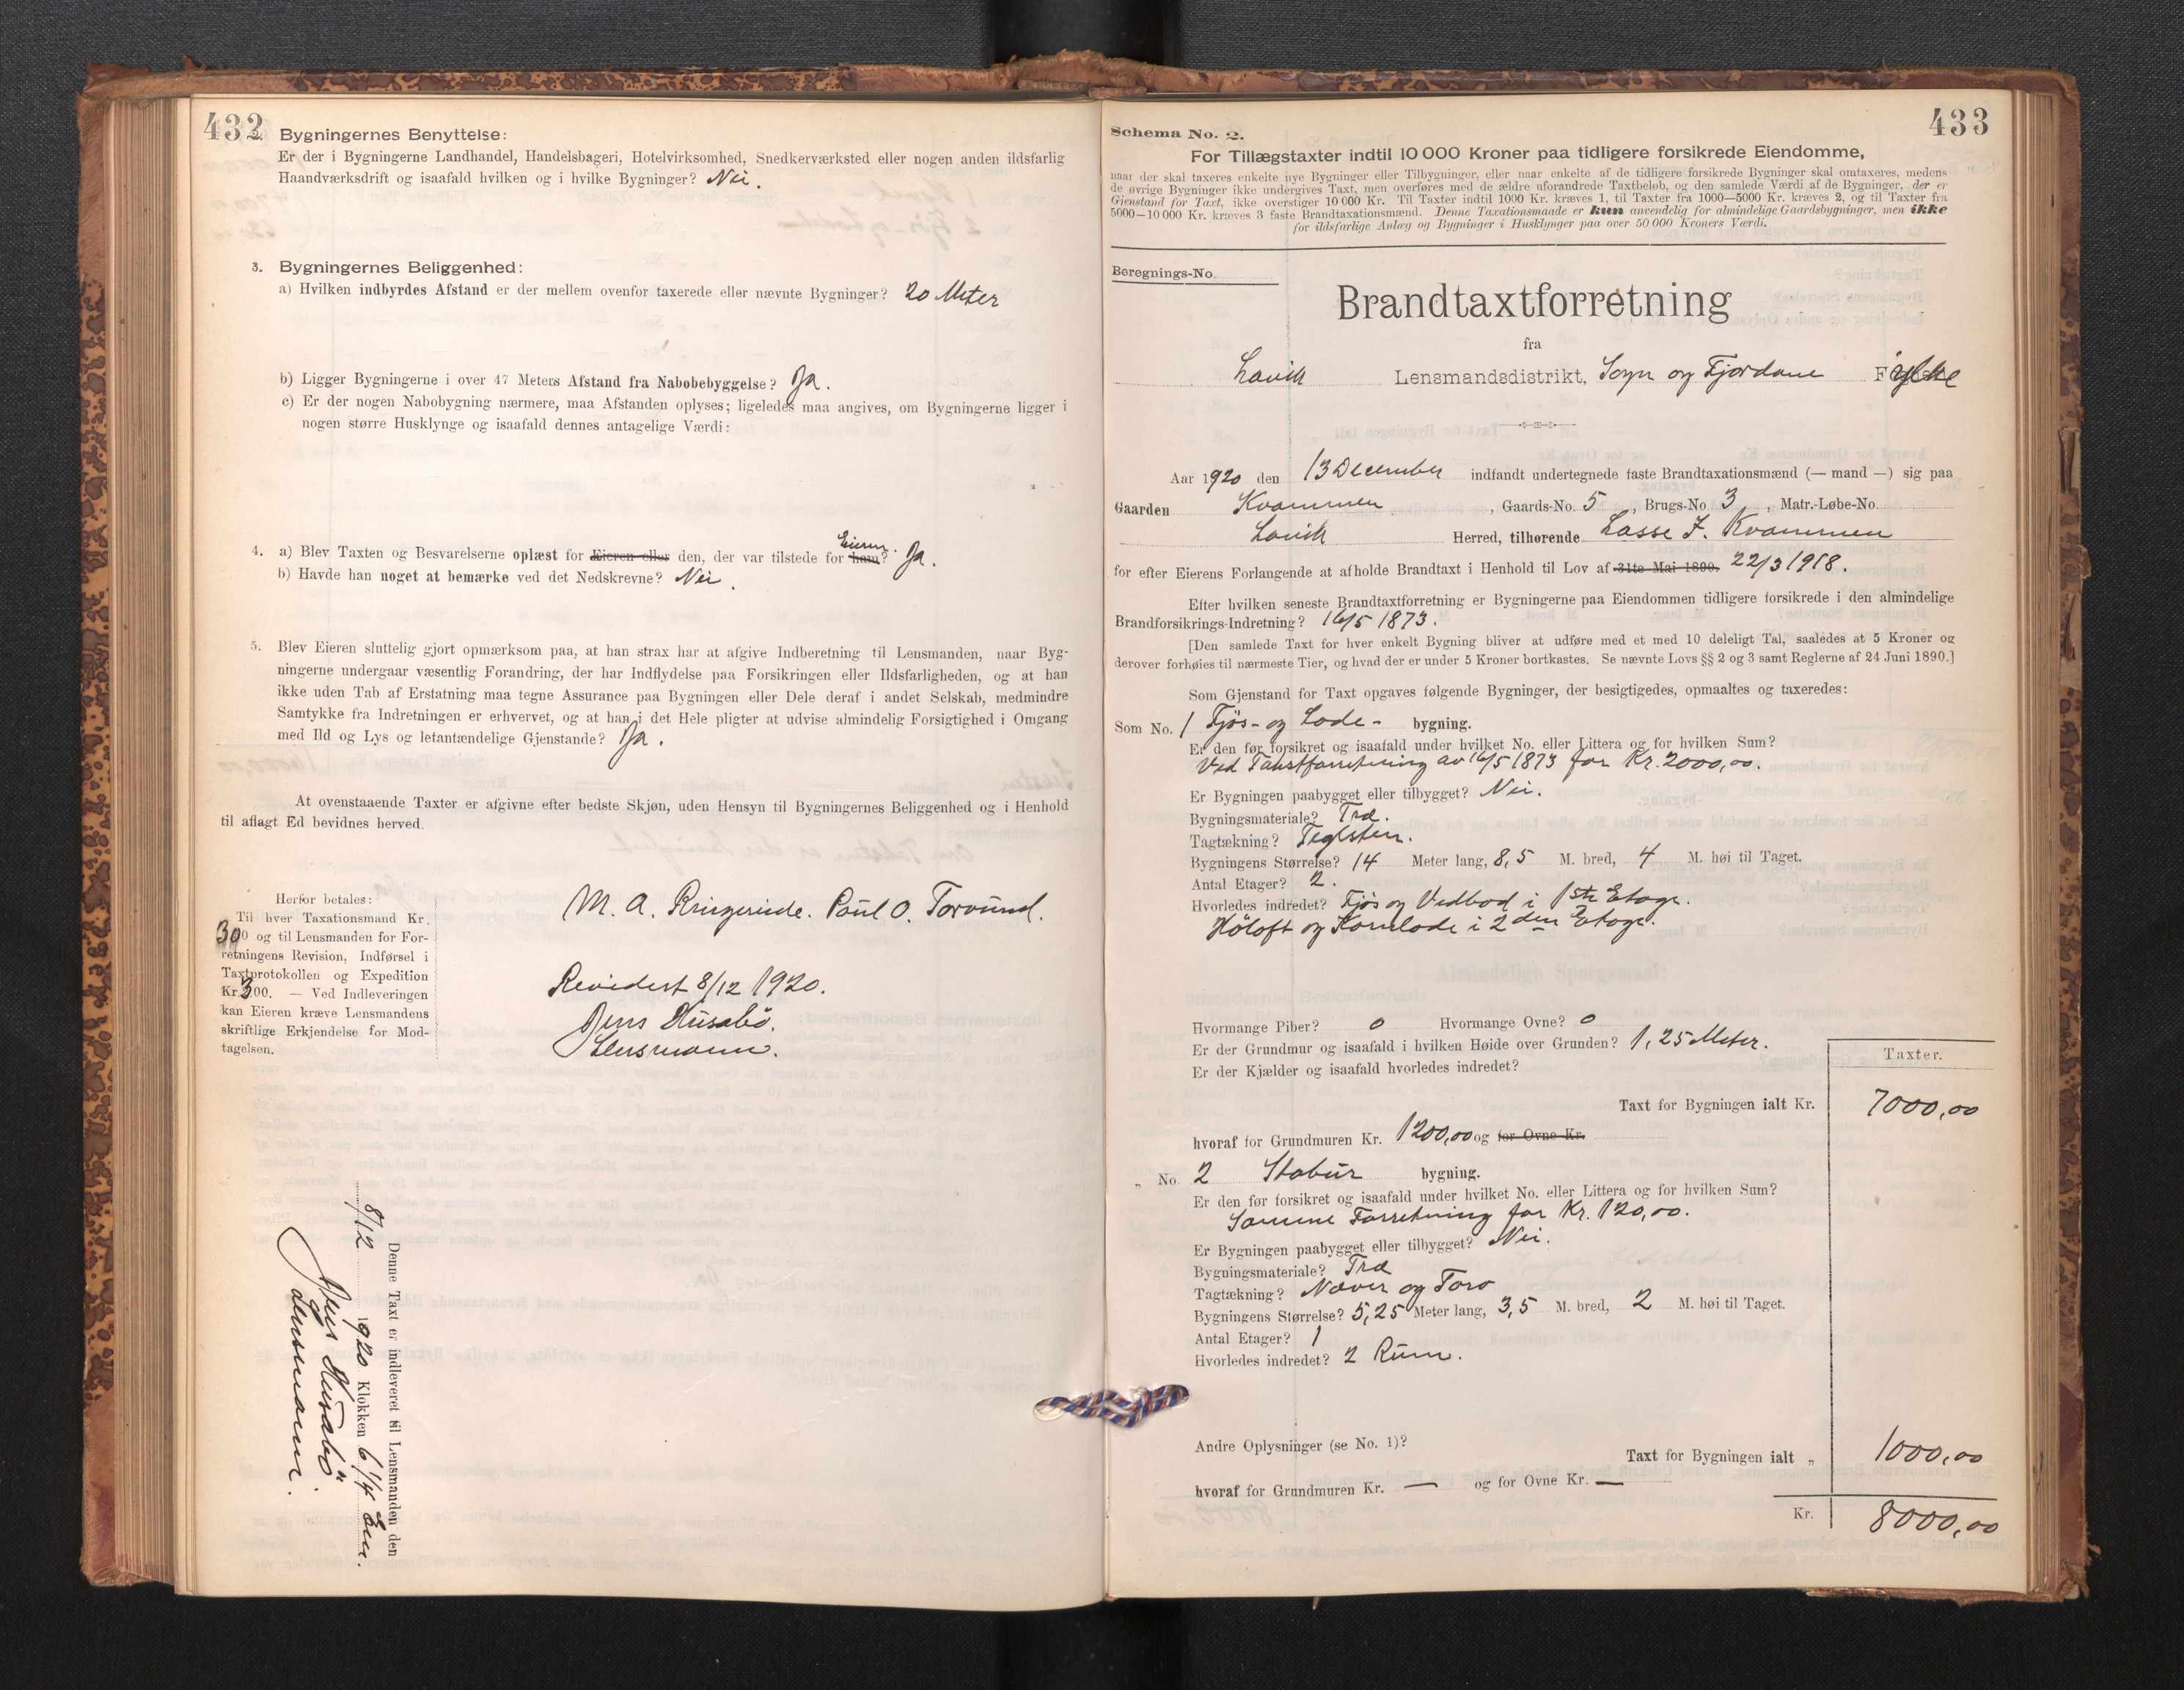 432
2. Bygningernes Benyttelse:
Er der i Bygningerne Landhandel, Handelsbageri, Hotelvirksomhed, Snedkerværksted eller nogen anden ildsfarlig
Haandværksdrift og isaafald hvilken og i hvilke Bygninger? Nei.
3. Bygningernes Beliggenhed:
a) Hvilken indbyrdes Afstand er der mellem ovenfor taxerede eller nævnte Bygninger? 20 Meter
b) Ligger Bygningerne i over 47 Meters Afstand fra Nabobebyggelse? Ja.
c) Er der nogen Nabobygning nærmere, maa Afstanden oplyses; ligeledes maa angives, om Bygningerne ligger i
nogen større Husklynge og isaafald dennes antagelige Værdi:
Eieren.
4. a) Blev Taxten og Besvarelserne oplæst for Eieren eller den, der var tilstede for ham? Ja.
b) Havde han noget at bemærke ved det Nedskrevne? Nei.
5. Blev Eieren sluttelig gjort opmærksom paa, at han strax har at afgive Indberetning til Lensmanden, naar Byg-
ningerne undergaar væsentlig Forandring, der har Indflydelse paa Forsikringen eller Ildsfarligheden, og at han
ikke uden Tab af Erstatning maa tegne Assurance paa Bygningen eller Dele deraf i andet Selskab, medmindre
Samtykke fra Indretningen er erhvervet, og at han i det Hele pligter at udvise almindelig Forsigtighed i Omgang
med Ild og Lys og letantændelige Gjenstande? Ja.
At ovenstaaende Taxter er afgivne efter bedste Skjøn, uden Hensyn til Bygningernes Beliggenhed og i Henhold
til aflagt Ed bevidnes herved.
Herfor betales:
Til hver Taxationsmand Kr.
300 og til Lensmanden for For-
retningens Revision, Indførsel i
Taxtprotokollen og Expedition
Kr. 300. — Ved Indleveringen
kan Eieren kræve Lensmandens
skriftlige Erkjendelse for Mod-
tagelsen.
M. A. Ringereide. Paul O. Torvund.
Revidert 8/12 1920.
Jens Husabö.
Lensmann.
Denne Taxt er indleveret til Lensmanden den
8/12 1920 Klokken 6 1/4 Em.
Jens Husabö
Lensmann.
433
Schema No. 2.
For Tillægstaxter indtil 10 000 Kroner paa tidligere forsikrede Eiendomme,
naar der skal taxeres enkelte nye Bygninger eller Tilbygninger, eller naar enkelte af de tidligere forsikrede Bygninger skal omtaxeres, medens
de øvrige Bygninger ikke undergives Taxt, men overføres med de ældre uforandrede Taxtbeløb, og den samlede Værdi af de Bygninger, der er
Gienstand for Taxt, ikke overstiger 10 000 Kr. Til Taxter indtil 1000 Kr. kræves 1, til Taxter fra 1000—5000 Kr. kræves 2, og til Taxter fra
5000—10 000 Kr. kræves 3 faste Brandtaxationsmænd. Denne Taxationsmaade er kun anvendelig for almindelige Gaardsbygninger, men ikke
for ildsfarlige Anlæg og Bygninger i Husklynger paa over 50 000 Kroners Værdi.
Beregnings-No.
Brandtaxtforretning
fra
Lavik Lensmandsdistrikt, Sogn og Fjordane Fylke
Aar 1920 den 13 December indfandt undertegnede faste Brandtaxationsmænd (— mand —) sig paa
Gaarden Kvammen, Gaards-No. 5, Brugs-No 3, Matr.-Løbe-No.
Lavik Herred, tilhørende Lasse J. Kvammen
for efter Eierens Forlangende at afholde Brandtaxt i Henhold til Lov af 31te Mai 1890. 22/3 1918.
Efter hvilken seneste Brandtaxtforretning er Bygningerne paa Eiendommen tidligere forsikrede i den almindelige
Brandforsikrings-Indretning? 16/5 1873.
[Den samlede Taxt for hver enkelt Bygning bliver at udføre med et med 10 deleligt Tal, saaledes at 5 Kroner og
derover forhøies til nærmeste Tier, og hvad der er under 5 Kroner bortkastes. Se nævnte Lovs §§ 2 og 3 samt Reglerne af 24 Juni 1890.]
Som Gjenstand for Taxt opgaves følgende Bygninger, der besigtigedes, opmaaltes og taxeredes:
Som No. 1 Fjös- og Lade- bygning.
Er den før forsikret og isaafald under hvilket No. eller Littera og for hvilken Sum?
Ved Takstforretning av 16/5 1873 for Kr. 2000,00.
Er Bygningen paabygget eller tilbygget? Nei.
Bygningsmateriale? Træ.
Tagtækning? Teglsten.
Bygningens Størrelse? 14 Meter lang, 8,5 M. bred, 4 M. høi til Taget.
Antal Etager? 2.
Hvorledes indredet? Fjös og Vedbod i 1ste Etage.
Höloft og Kornlade i 2den Etage.
Hvormange Piber? 0 Hvormange Ovne? 0
Er der Grundmur og isaafald i hvilken Høide over Grunden? 1,25 Meter.
Er der Kjælder og isaafald hvorledes indredet?
Taxter.
Taxt for Bygningen ialt Kr. 7000,00
hvoraf for Grundmuren Kr. 1200,00 og for Ovne Kr.
„ No. 2 Stabur bygning.
Er den før forsikret og isaafald under hvilket No. eller Littera og for hvilken Sum?
Samme Forretning for Kr. 120,00.
Er Bygningen paabygget eller tilbygget? Nei.
Bygningsmateriale? Træ
Tagtækning? Næver og Torv
Bygningens Størrelse? 5,25 Meter lang, 3,5 M. bred, 2 M. høi til Taget.
Antal Etager? 1
Hvorledes indredet? 2 Rum.
Andre Oplysninger (se No. 1)?
Taxt for Bygningen ialt „ 1000,00
hvoraf for Grundmuren Kr. — og for Ovne Kr. —
Kr. 8000,00